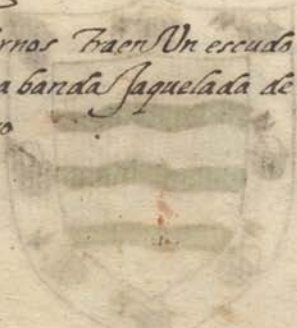 rnos Traen Vn escudo
a banda Jaquelada de
o